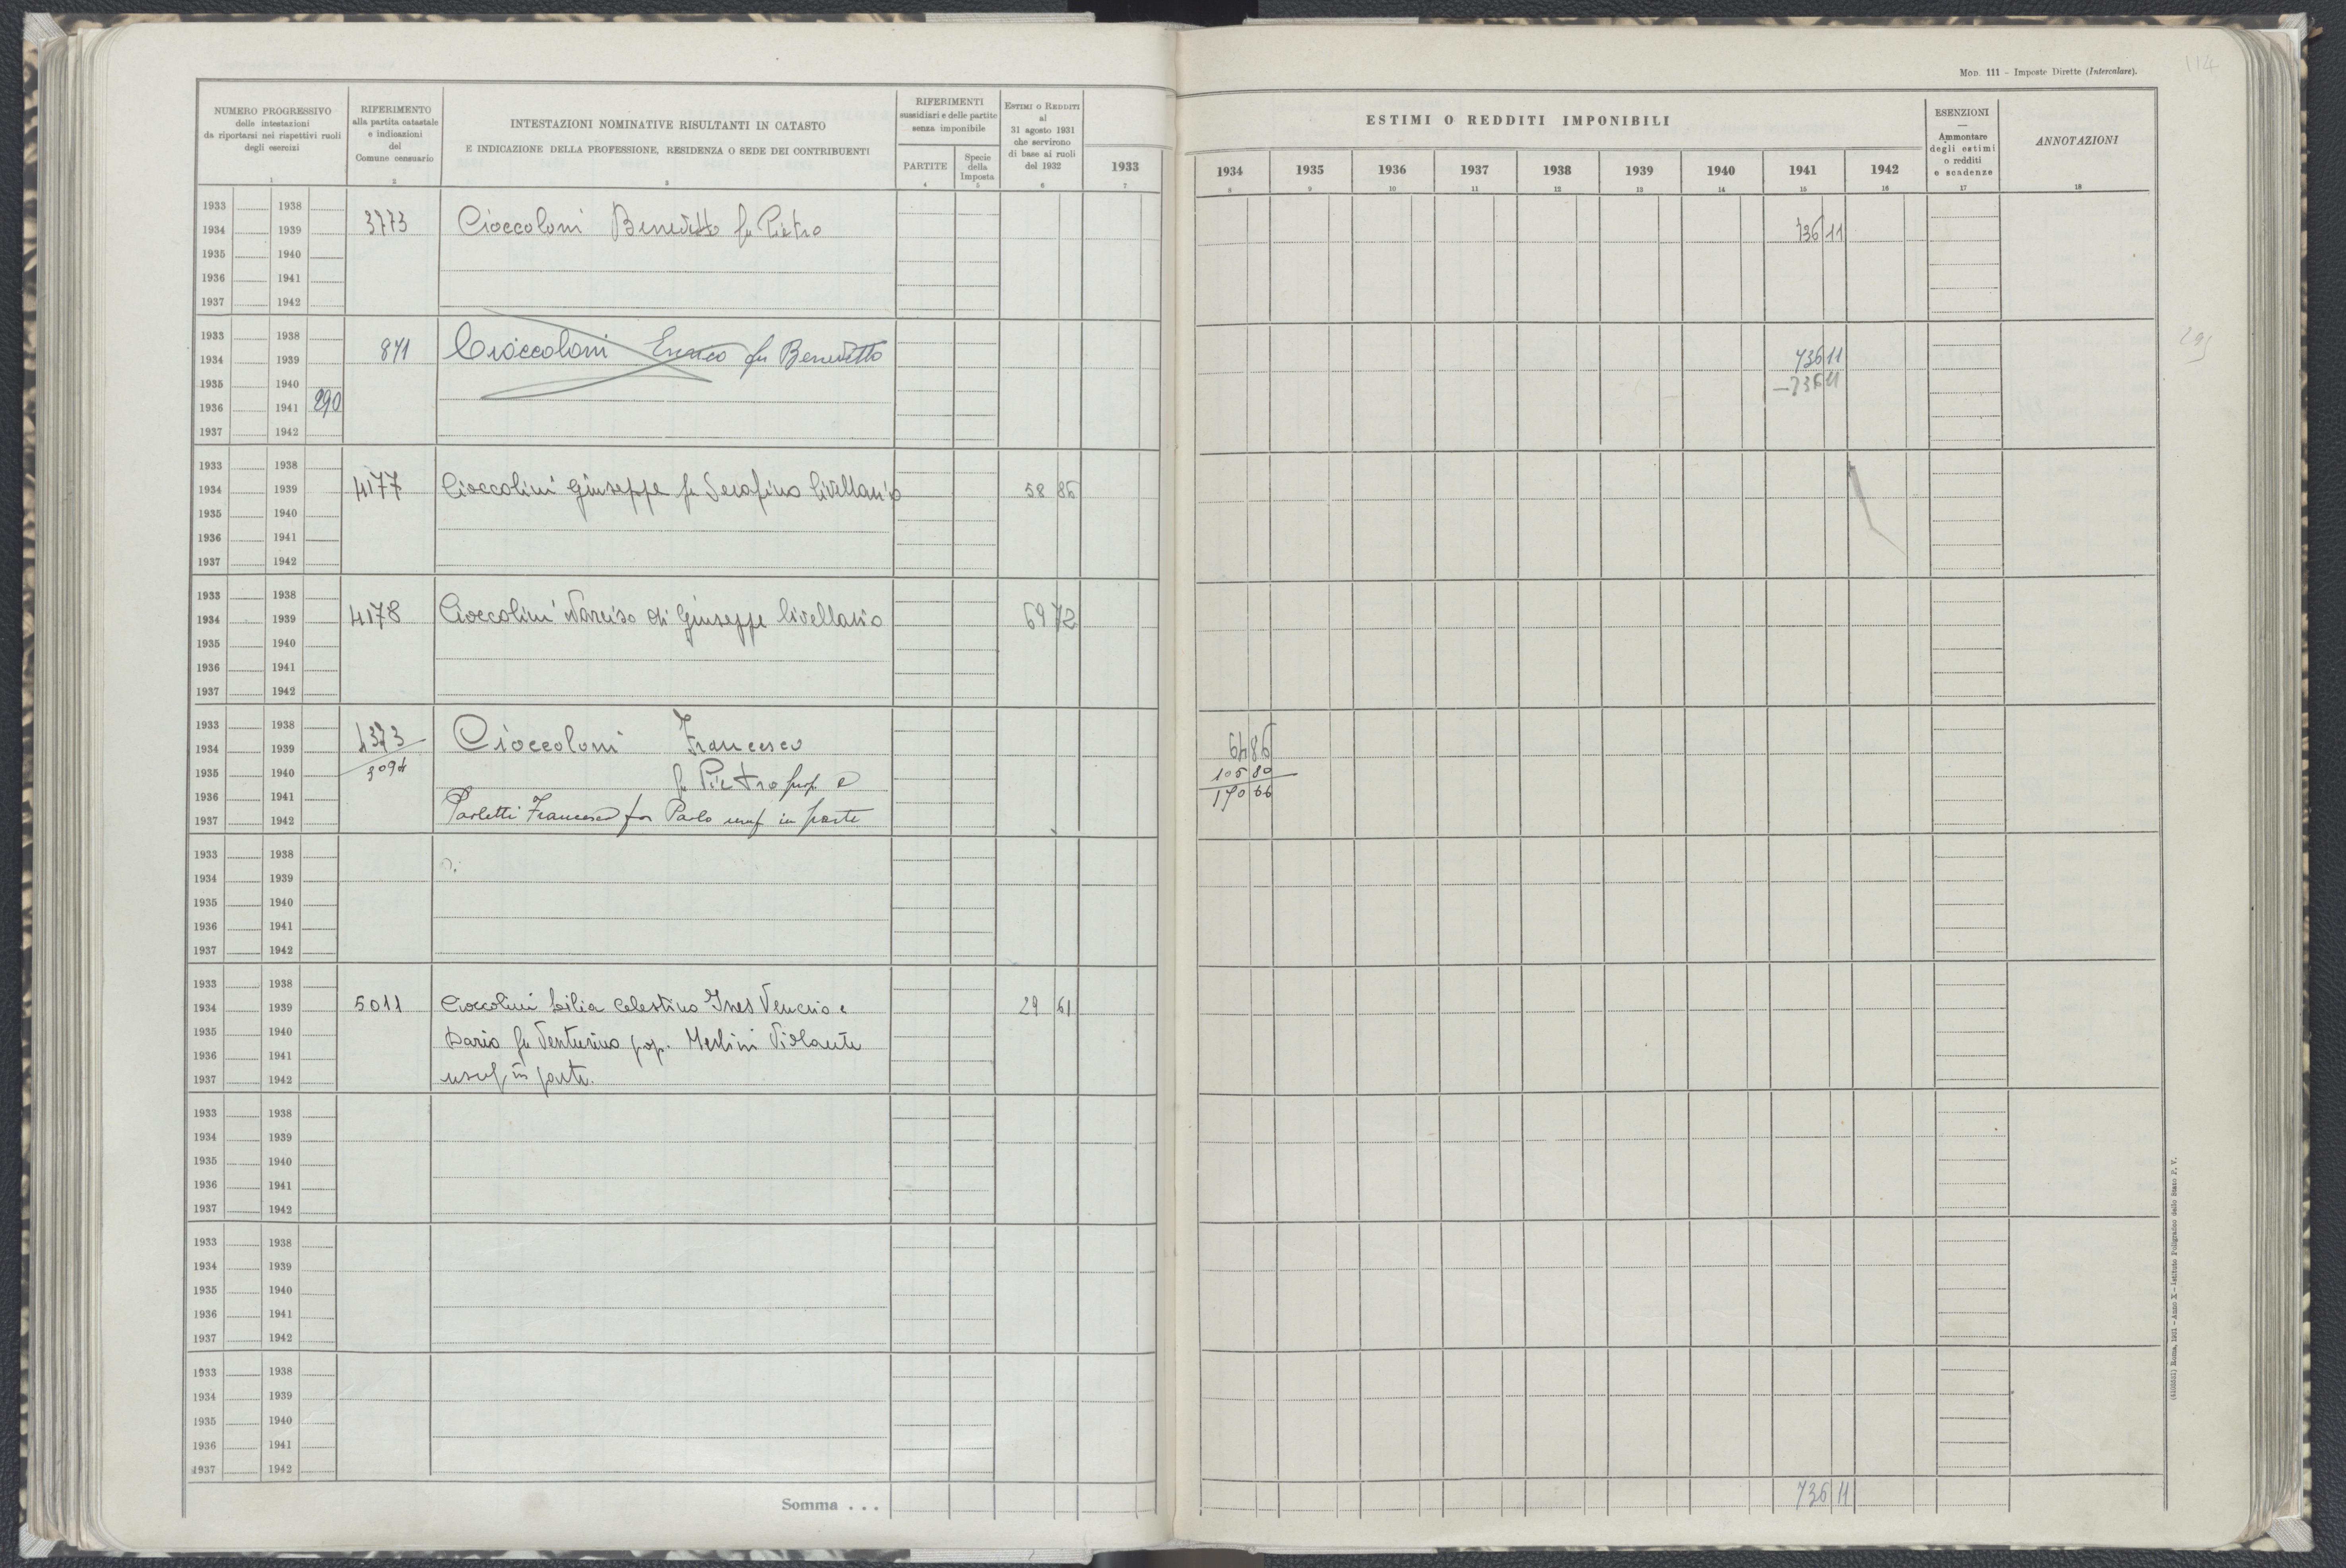 Mod. 111 – Imposte Dirette (Intercalare).
114
NUMERO PROGRESSIVO
delle intestazioni
da riportarsi nei rispettivi ruoli
degli esercizi
1
RIFERIMENTO
alla partita catastale
e indicazioni
del
Comune censuario
2
INTESTAZIONI NOMINATIVE RISULTANTI IN CATASTO
E INDICAZIONE DELLA PROFESSIONE, RESIDENZA O SEDE DEI CONTRIBUENTI
3
RIFERIMENTI
sussidiari e delle partite
senza imponibile
PARTITE
4
Specie
della
Imposta
5
Estimi o Redditi
al
31 agosto 1931
che servirono
di base ai ruoli
del 1932
6
1933
7
ESTIMI O REDDITI IMPONIBILI
1934 1935 1936 1937 1938 1939 1940 1941 1942
8 9 10 11 12 13 14 15 16
ESENZIONI
—
Ammontare
degli estimi
o redditi
e scadenze
17
ANNOTAZIONI
18
1933 1938
1934 1939 3773 Cioccoloni Benedetto fu Pietro 736 11
1935 1940
1936 1941
1937 1942
1933 1938
1934 1939 871 Cioccoloni Enrico fu Benedetto 736 11
1935 1940 – 736 11
1936 1941 290
1937 1942
1933 1938
1934 1939 4177 Cioccolini Giuseppe fu Serafino livellario 58 86
1935 1940
1936 1941
1937 1942
1933 1938
1934 1939 4178 Cioccolini Narciso di Giuseppe livellario 69 72
1935 1940
1936 1941
1937 1942
1933 1938
1934 1939 4373 Cioccoloni Francesco 64 86
1935 1940 3094 fu Pietro prop. e 105 80
1936 1941 170 66
1937 1942 Paoletti Francesco fu Paolo usuf in parte
1933 1938
1934 1939
1935 1940
1936 1941
1937 1942
1933 1938
1934 1939 5011 Cioccolini Lilia Celestino Ines Venerio e 29 61
1935 1940 Dario fu Venturino pop. Merlini Violante
1936 1941
1937 1942 usuf in parte.
1933 1938
1934 1939
1935 1940
1936 1941
1937 1942
1933 1938
1934 1939
1935 1940
1936 1941
1937 1942
1933 1938
1934 1939
1935 1940
1936 1941
1937 1942
Somma . . . 736 11
(4105551) Roma, 1931 – Anno X – Istituto Poligrafico dello Stato P. V.